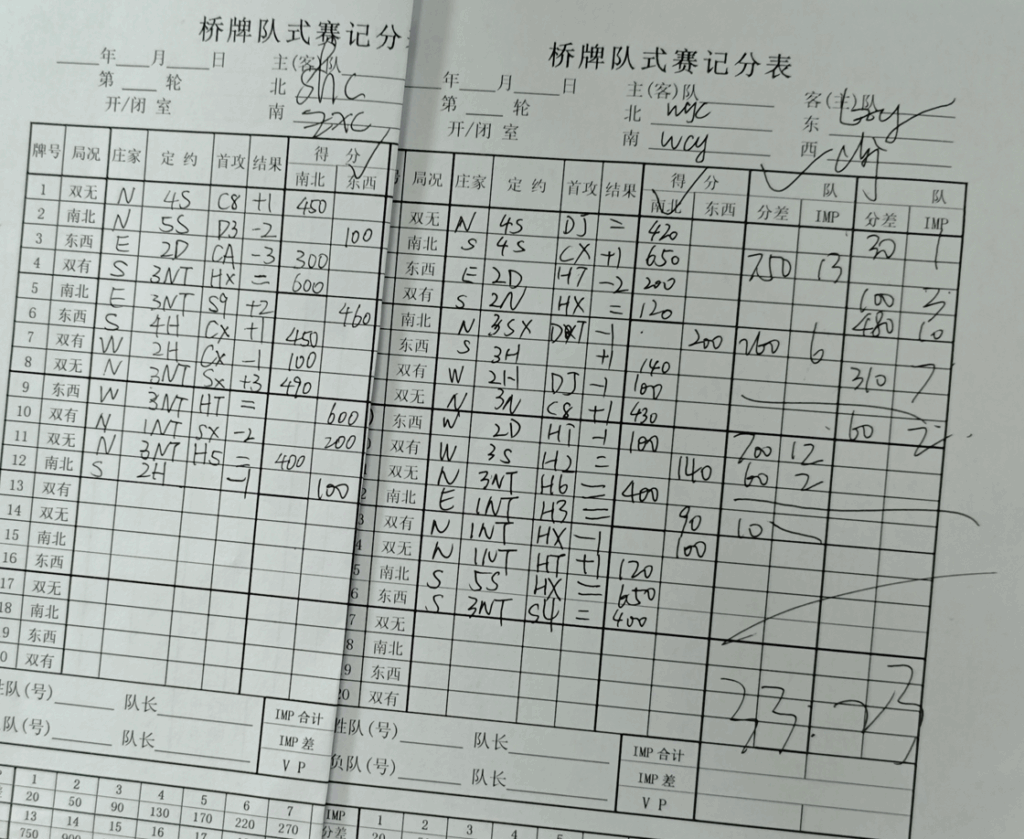 桥牌队式赛记分
年 月 日 主(客)队
第 轮 北 shc
开/闭 室 南 zxc
牌号 局况 庄家 定约 首攻 结果 得分
南北 东西
1 双无 N 4S C8 +1 450
2 南北 N 5S D3 -2 100
3 东西 E 2D CA -3 300
4 双有 S 3NT HX = 600
5 南北 E 3NT S9 +2 460
6 东西 S 4H CX +1 450
7 双有 W 2H CX -1 100
8 双无 N 3NT SX +3 490
9 东西 W 3NT HT = 600
10 双有 N 1NT SX -2 200
11 双无 N 3NT H5 = 400
12 南北 S 2H -1 100
13 双有
14 双无
15 南北
16 东西
17 双无
18 南北
19 东西
20 双有
胜队(号) 队长
队(号) 队长
IMP 合计
IMP 差
V P
1 2 3 4 5 6 7
20 50 90 130 170 220 270
13 14 15 16 17
750 900
桥牌队式赛记分表
年 月 日 主(客)队 客(主)队
第 轮 北 wgc 东
开/闭 室 南 wcy 西
局况 庄家 定约 首攻 结果 得分 队 队
南北 东西 分差 IMP 分差 IMP
双无 N 4S DJ = 420 30 1
南北 S 4S CX +1 650 750 13
东西 E 2D H7 -2 200 100 3
双有 S 2N HX = 120 480 10
南北 N 3SX -1 200 260 6
东西 S 3H +1 140 310 7
双有 W 2H DJ -1 100
双无 N 3N C8 +1 430 60 2
东西 W 2D HT -1 100 700 12
双有 W 3S H2 = 140 60 2
双无 N 3NT H6 = 400
南北 E 1NT H3 = 90 10
双有 N 1NT HX -1 100
双无 N 1NT HT +1 120
南北 S 5S HX = 650
东西 S 3NT S4 = 400
7 双无
8 南北
9 东西
20 双有
33 : 23
胜队(号) 队长
负队(号) 队长
IMP 合计
IMP 差
V P
IMP 1 2 3 4 5
分差 20